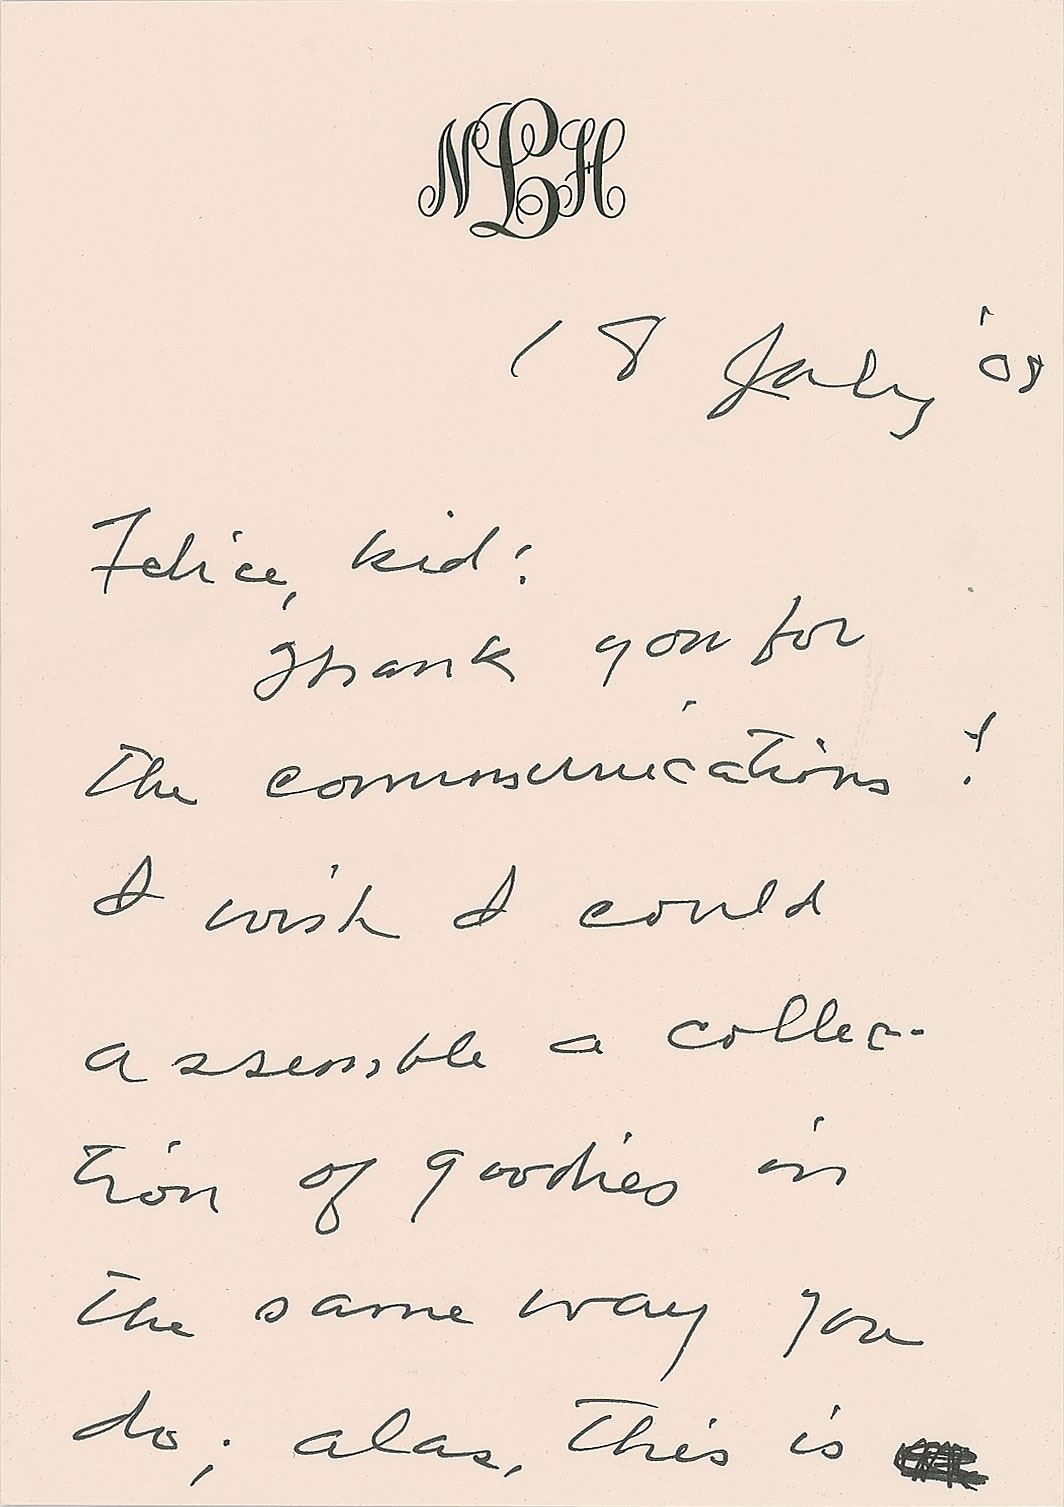 NLH
18 July '08
Felice, kid:
Thank you for
the communications!
I wish I could
assemble a collec-
tion of goodies in
the same way you
do; alas, this is